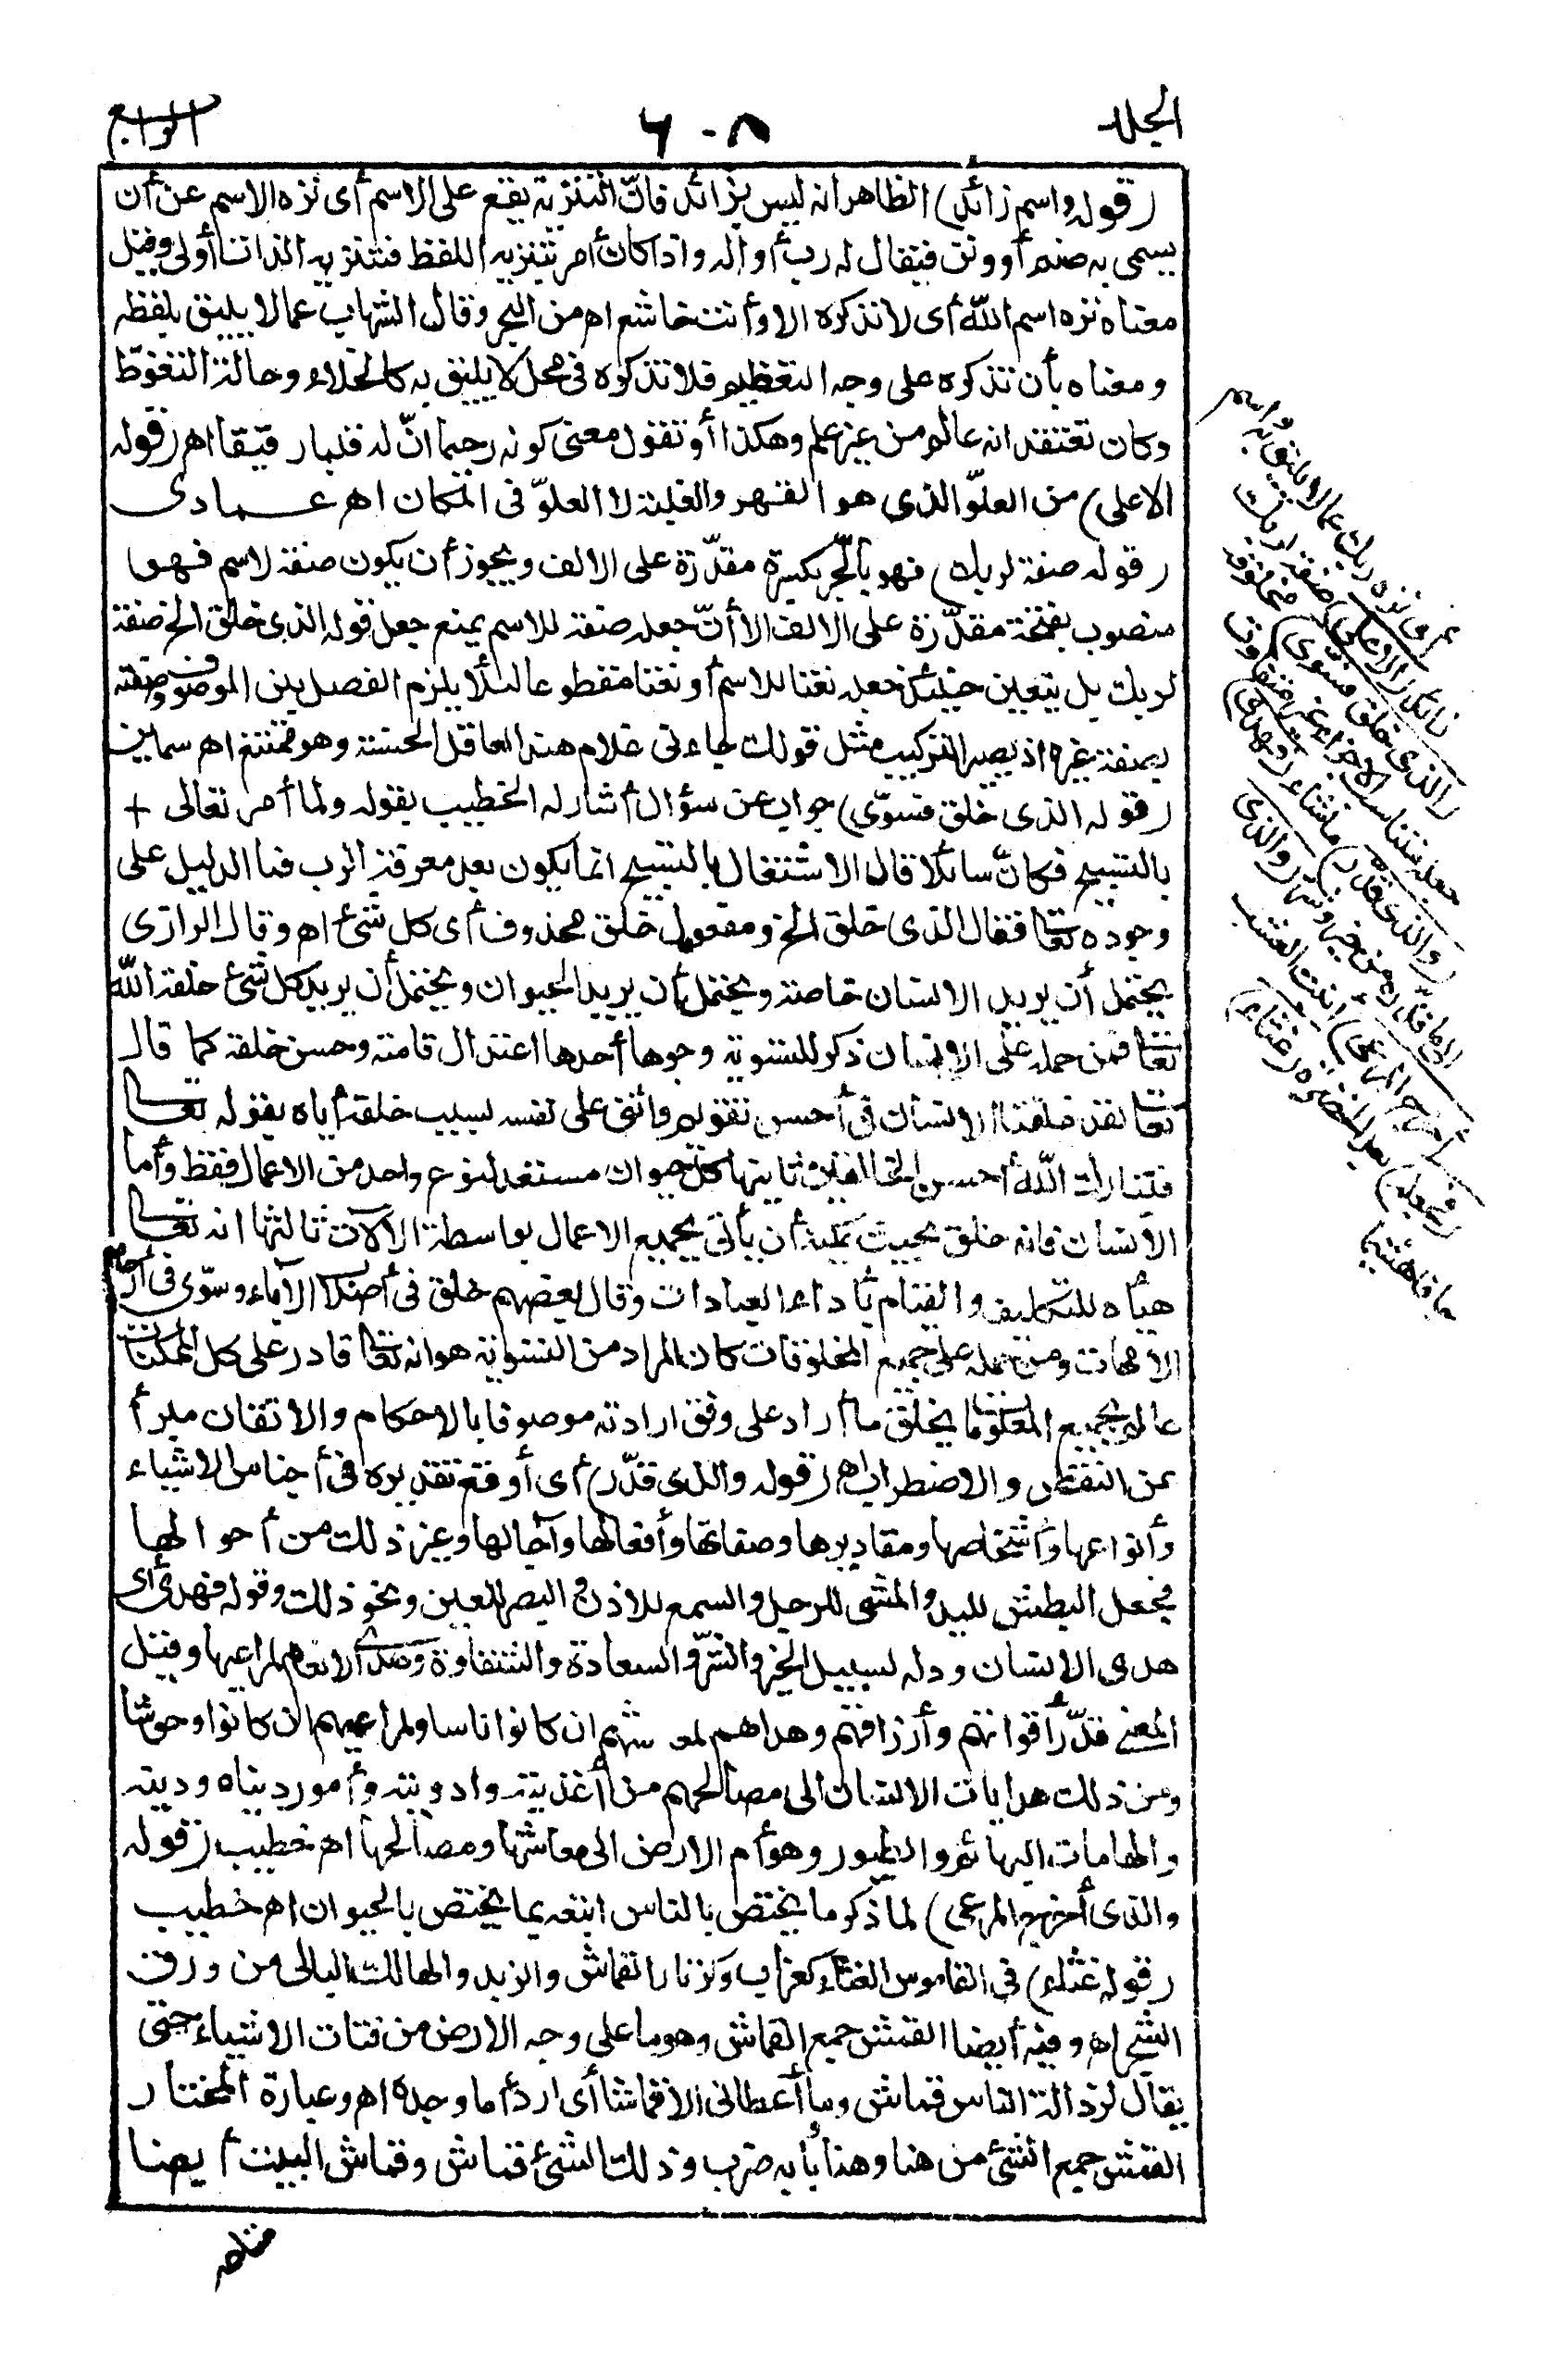 الجلد
٦٠٨
الرابع
(قوله واسم زائد) الظاهر انه ليس بزائد فانّ التنزيه يقع على الاسم أى نزه الاسم عن أن
يسمى به صنم أو وثن فيقال له رب أو اله واذا كان أمر بتنزيه اللفظ فتنزيه الذات أولى وقيل
معناه نزه اسم اللّه أى لا تذكره الا وأنت خاشع اه من البحر وقال الشهاب عما لا يليق بلفظه
ومعناه بأن تذكره على وجه التعظيم فلا تذكره فى محل لا يليق به كالخلاء وحالة التغوّط
وكان تعتقد انه عالم من غير علم وهكذا أو تقول معنى كونه رحيما انّ له قلبا رقيقا اه (قوله
الاعلى) من العلوّ الذى هو القهر والغلبة لا العلوّ فى المكان اه عمادى
(قوله صفة لربك) فهو بالجّر بكسرة مقدّرة على الالف ويجوز أن يكون صفة لاسم فهو
منصوب بفتحة مقدّرة على الالف الا أنّ جعله صفة للاسم يمنع جعل قوله الذى خلق الخ صفة
لربك بل يتعين حينئذ جعله نعتا للاسم أو نعتا مقطوعا لئلا يلزم الفصل بين الموصوف وصفته
بصفة غيره اذ يصير التركيب مثل قولك جاءنى غلام هند العاقل الحسنة وهو ممتنع اه سمين
(قوله الذى خلق فسوّى) جواب عن سؤال أشار له الخطيب بقوله ولما أمر تعالى +
بالتسبيح فكانّ سائلا قال الاشتغال بالتسبيح انما يكون بعد معرفة الرب فما الدليل على
وجوده تعا فقال الذى خلق الخ ومفعول خلق محذوف أى كل شئ اه وقال الرازى
يحتمل أن يريد الانسان خاصة ويحتمل أن يريد الحيوان ويحتمل أن يريد كل شئ خلقه اللّه
تعا فمن حمله على الانسان ذكر للتسوية وجوها أحدها اعتدال قامته وحسن خلقه كما قال
تعا لقد خلقنا الانسان فى أحسن تقويم واثنى على نفسه بسبب خلقه أياه بقوله تعا
فتبارك اللّه أحسن الخالقين ثانيها كل حيوان مستعد لنوع واحد من الاعمال فقط وأما
الانسان فانه خلق بحيث يمكنه أن يأتى بجميع الاعمال بواسطة الآلات ثالثها انه تعا
هيأه للتكليف والقيام بأداء العبادات وقال بعضهم خلق فى أصلاب الآباء وسوّى فى أرحام
الأمهات ومن حمله على جميع المخلوقات كان المراد من التسوية هو انه تعا قادر على كل الممكنات
عالم بجميع المعلومات يخلق ما أراد على وفق ارادته موصوفا بالاحكام والاتقان مبرأ
عن النقض والاضطراب اه (قوله والذى قدّر) أى أوقع تقديره فى أجناس الاشياء
وأنواعها وأشخاصها ومقاديرها وصفاتها وأفعالها وآجالها وغير ذلك من أحوالها
فجعل البطش لليد والمشى للرجل والسمع للاذن والبصر للعين ونحو ذلك وقوله فهدى أى
هدى الانسان ودله لسبيل الخير والشرّ والسعادة والشقاوة وهدى الانعام لمراعيها وقيل
المعنى قدّر أقواتهم وأرزاقهم وهداهم لمعاشهم ان كانوا ناسا ولمراعيهم ان كانوا وحوشا
ومن ذلك هدايات الانسان الى مصالحهم من أغذيته وادويته وأمور دنياه ودينه
والهامات البهائم والطيور وهوأم الارض الى معاشها ومصالحها اه خطيب (قوله
والذى أخرج المرعى) لما ذكر ما يختص بالناس اتبعه بما يختص بالحيوان اه خطيب
(قوله غثاء) فى القاموس الغثاء كغراب وكزنار القماش والزبد والهالك البالى من ورق
الشجر اه وفيه أيضا القمش جمع القماش وهو ما على وجه الارض من فتات الاشياء حتى
يقال لرذالة الناس قماش وما أعطانى الا قماشا أى اردأ ما وجده اه وعبارة المختار
القمش جمع الشئ من هنا وهنا بابه ضرب وذلك الشئ قماش وقماش البيت أيضا
أى نزه ربك عما لا يليق به واسم
زائد (الاعلى) صفة لربك
(الذى خلق فسوّى) مخلوقه
جعله متناسب الاجزاء غير متفاوت
(والذى قدّر) ما شاء (فهدى)
الى ما قدّره من خير وشر (والذى
أخرج المرعى) أنبت العشب
(فجعله) بعد الخضرة (غثاء)
جافا هشيما
متاعه